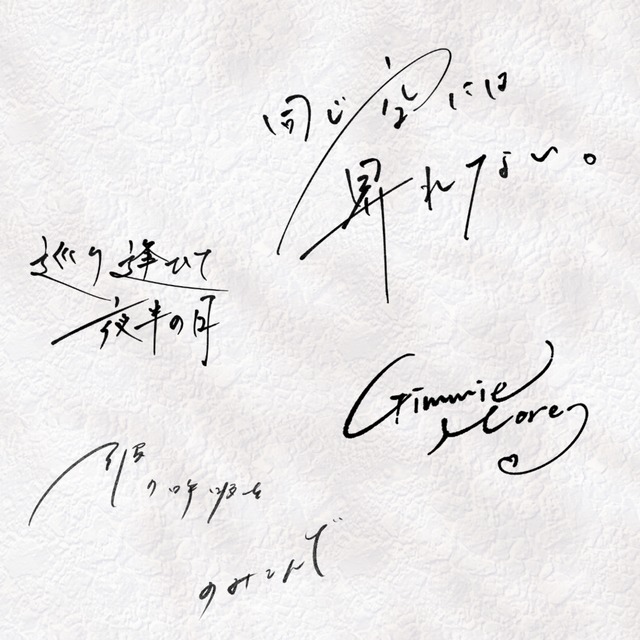 同じ空には
昇れない。
巡り逢ひて
夜半の月
Gimmie
More
仮の呼吸を
のみこんで